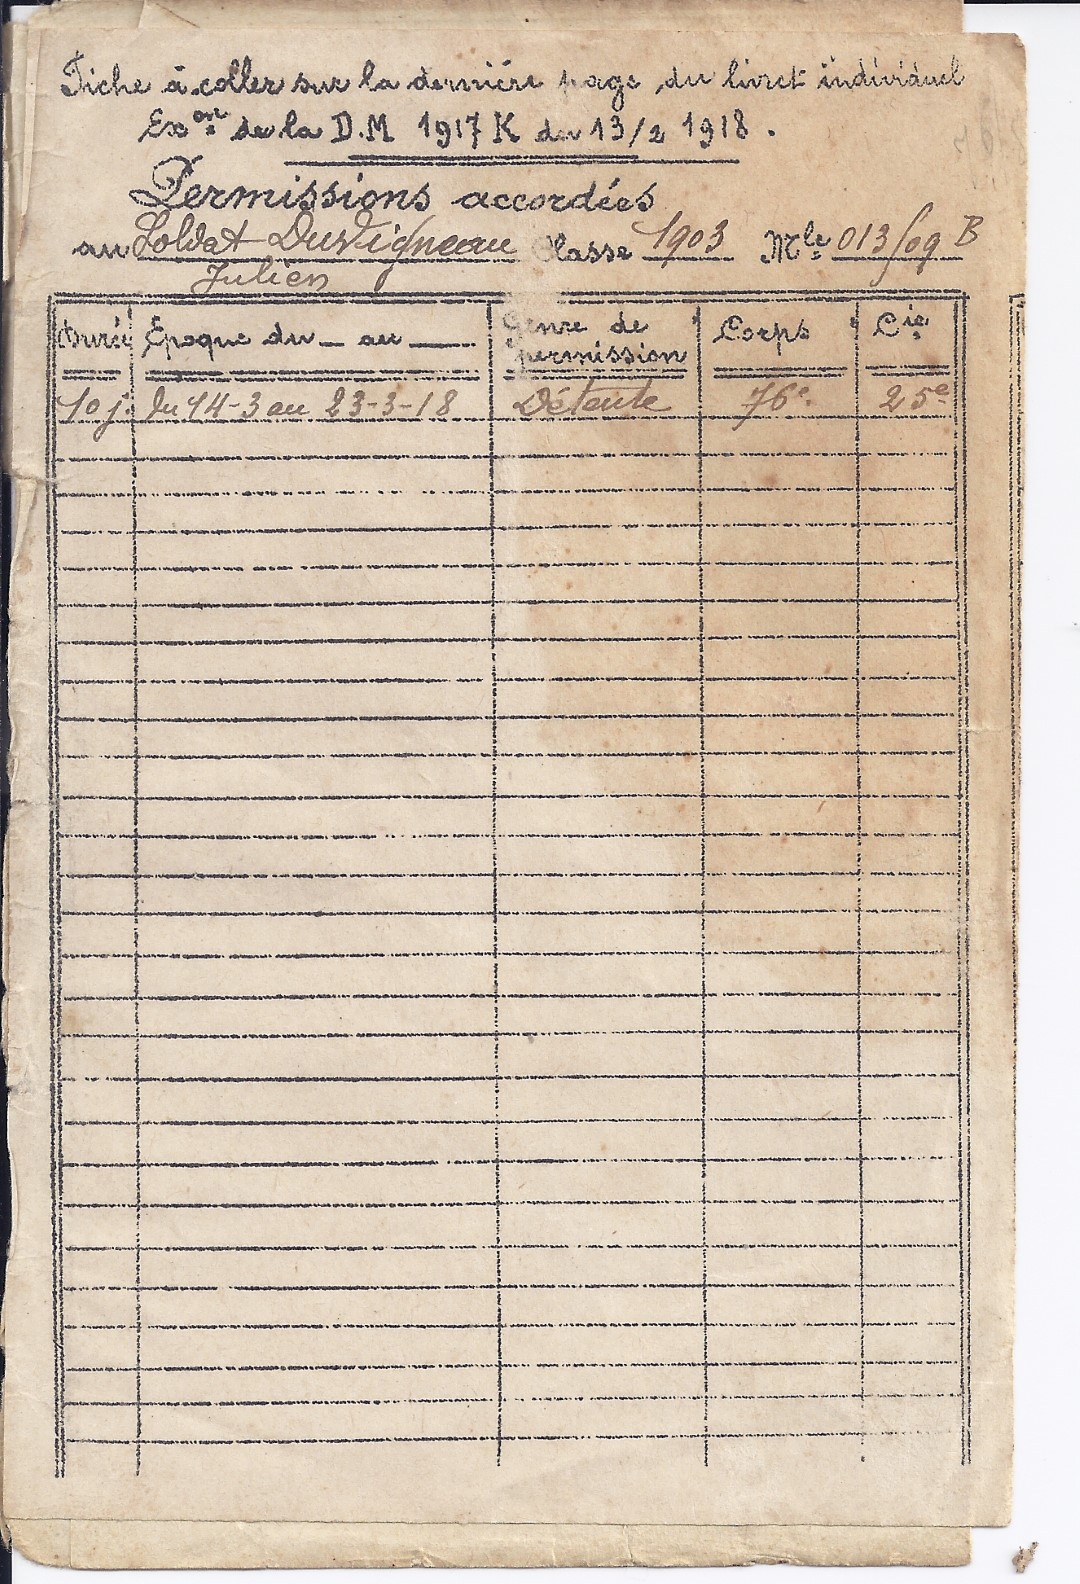 Fiche à coller sur la dernière page du livret individuel
Exon de la D.M 1917 K du 13/2 1918.
Permissions accordées
au Soldat Duvigneau Classe 1903 Mle 013/09 B
Julien
Durée Époque du _ au ___ Genre de permission Corps Cie
10 j. du 14-3 au 23-3-18 Détente 76e. 25e